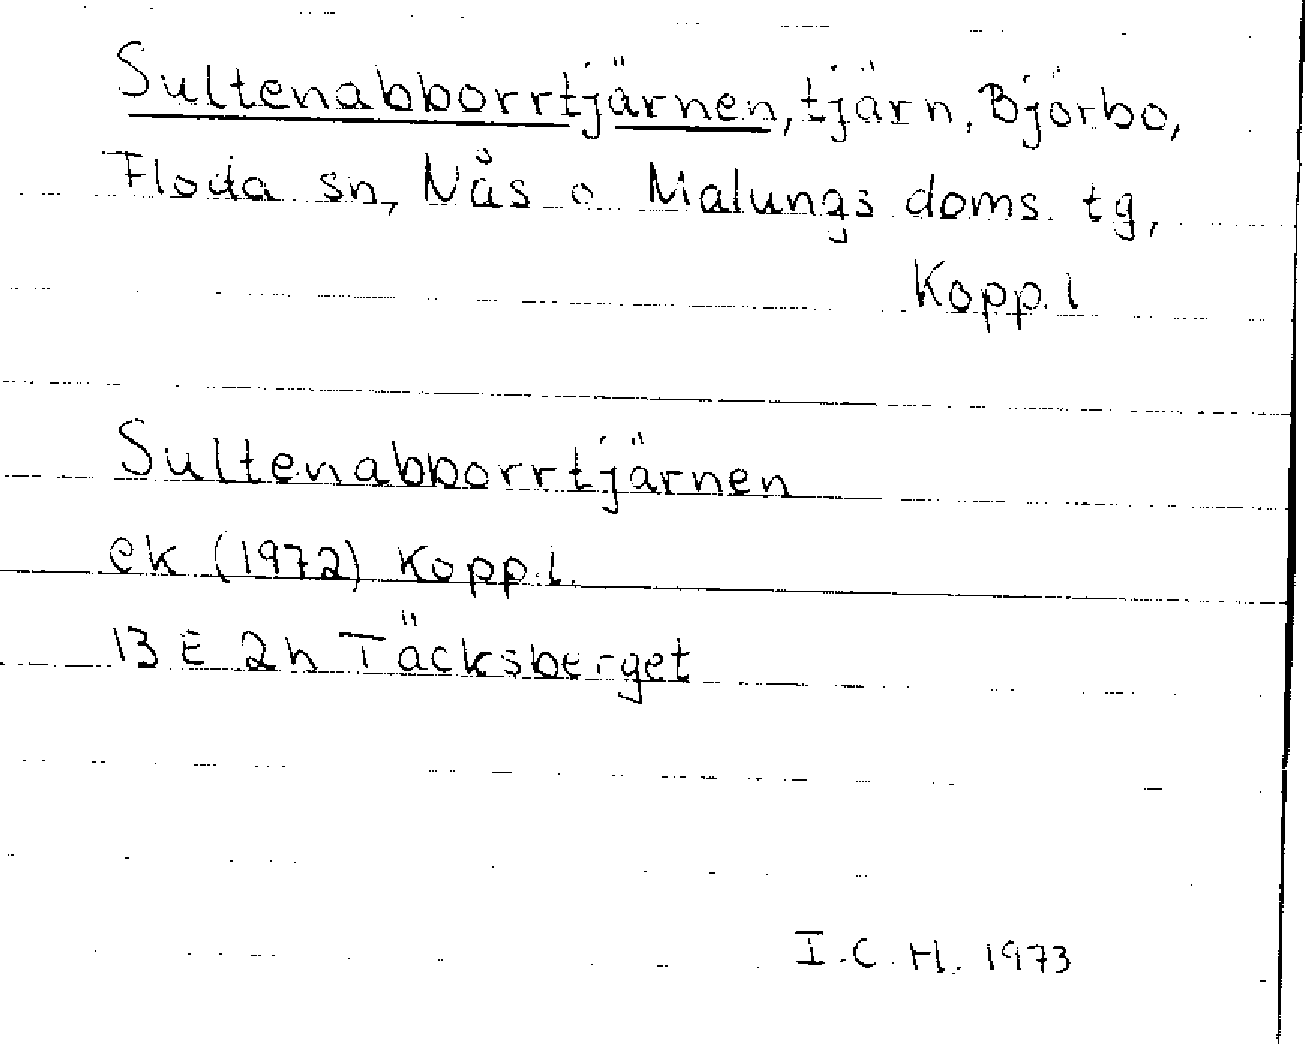 Sultenabborrtjärnen, tjärn, Björbo,
Floda sn, Nås o Malungs doms. tg,
Kopp. l
Sultenabborrtjärnen
ek (1972) Kopp. l.
13 E 2h Täcksberget
I. C. H. 1973